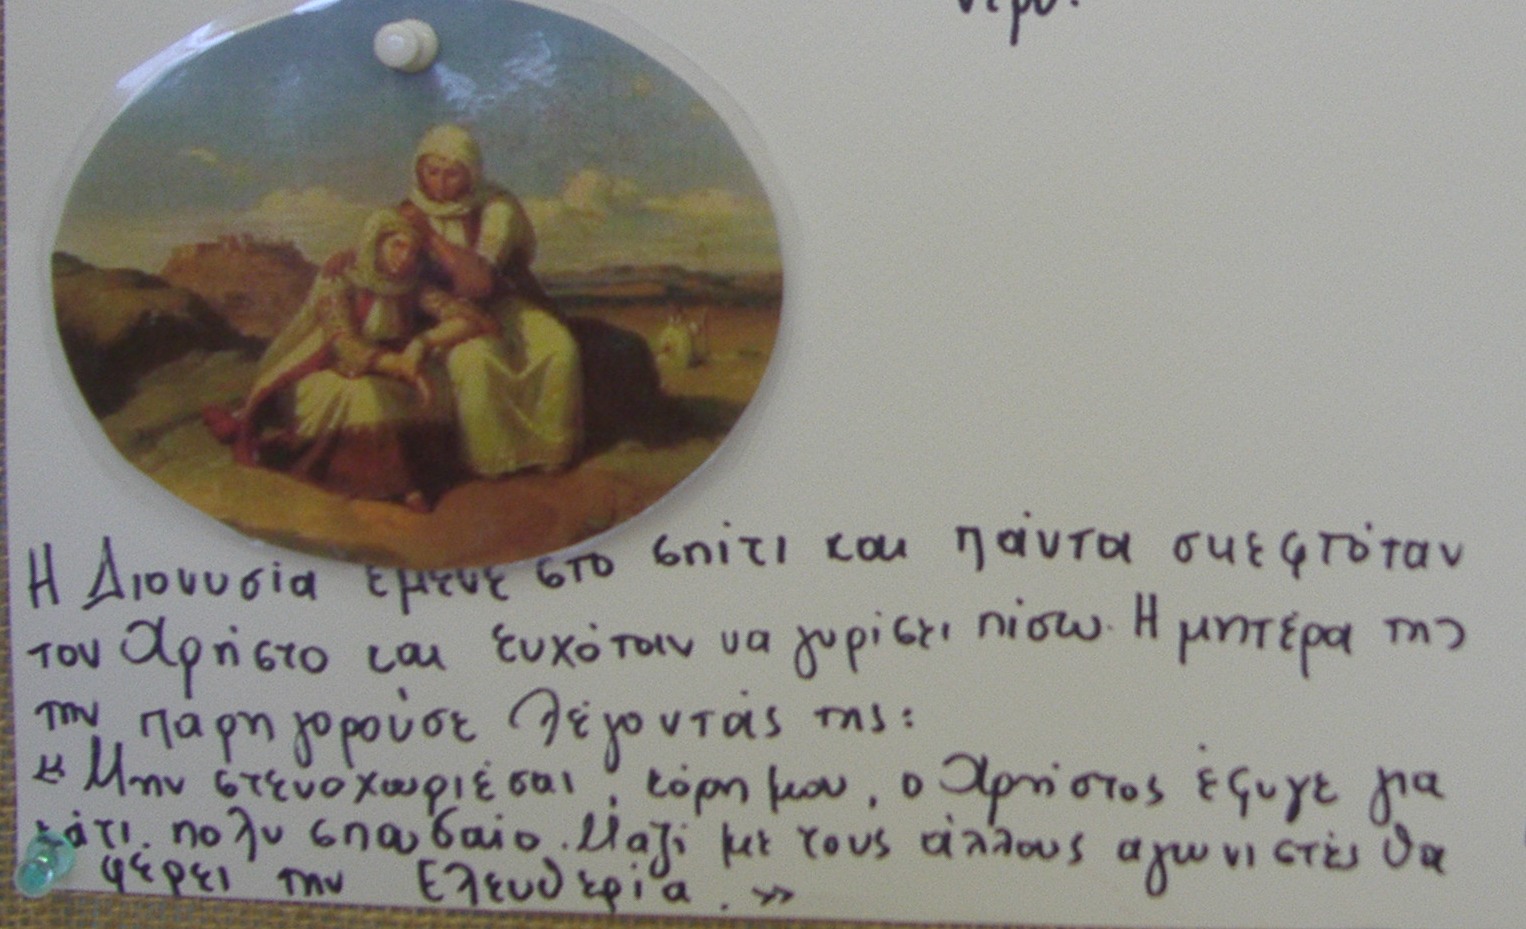 νερό.
Η Διονυσία έμενε στο σπίτι και πάντα σκεφτόταν
τον Χρήστο και ευχόταν να γυρίσει πίσω. Η μητέρα της
την παρηγορούσε λέγοντάς της:
« Μην στενοχωριέσαι, κόρη μου, ο Χρήστος έφυγε για
κάτι πολύ σπουδαίο. Μαζί με τους άλλους αγωνιστές θα
φέρει την Ελευθερία. »